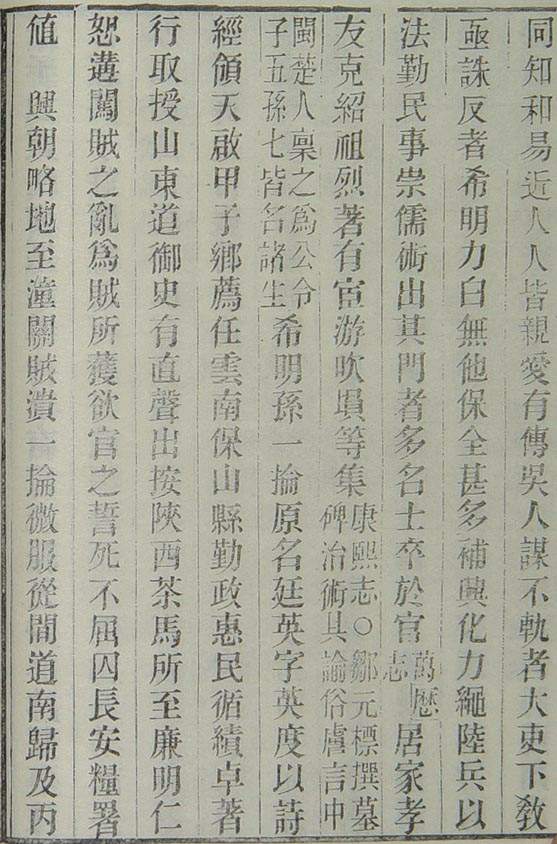 同知和易近人人皆親愛有傳吳人謀不軌者大吏下敎
亟誅反者希明力白無他保全甚多補興化力繩陸兵以
法勤民事崇儒術出其門者多名士卒於官萬歷志居家孝
友克紹祖烈著有宦游吹塤等集康熙志〇鄒元標撰墓碑治術具論俗膚言中
閩楚人稟之爲公令子五孫七皆名諸生希明孫一掄原名廷英字英度以詩
經領天啟甲子鄉薦任雲南保山縣勤政惠民循績卓著
行取授山東道御史有直聲出按陝西茶馬所至廉明仁
恕遘闖賊之亂爲賊所獲欲官之誓死不屈囚長安糧署
値 興朝略地至潼關賊潰一掄微服從間道南歸及丙